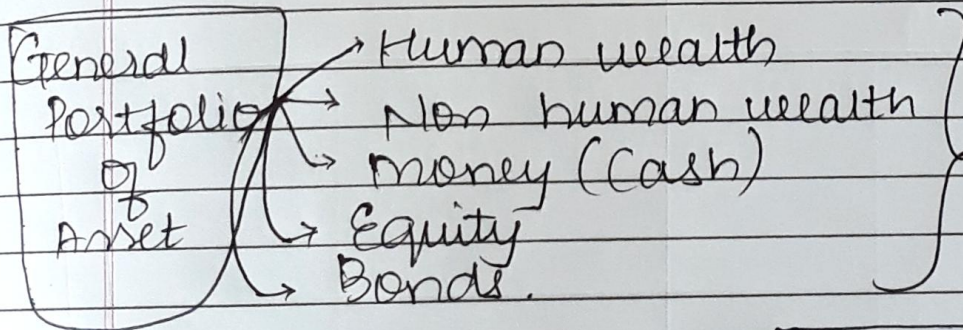 General
Portfolio
of
Asset
Human wealth
Non human wealth
money (Cash)
Equity
Bonds.